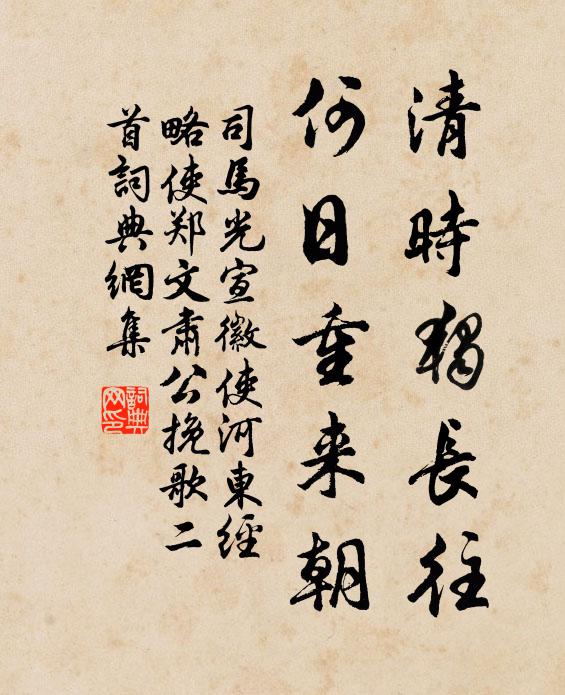 清時獨長往
何日重来朝
司馬光宣徽使河東經
略使郑文肅公挽歌二
首詞典網集
詞典
网印